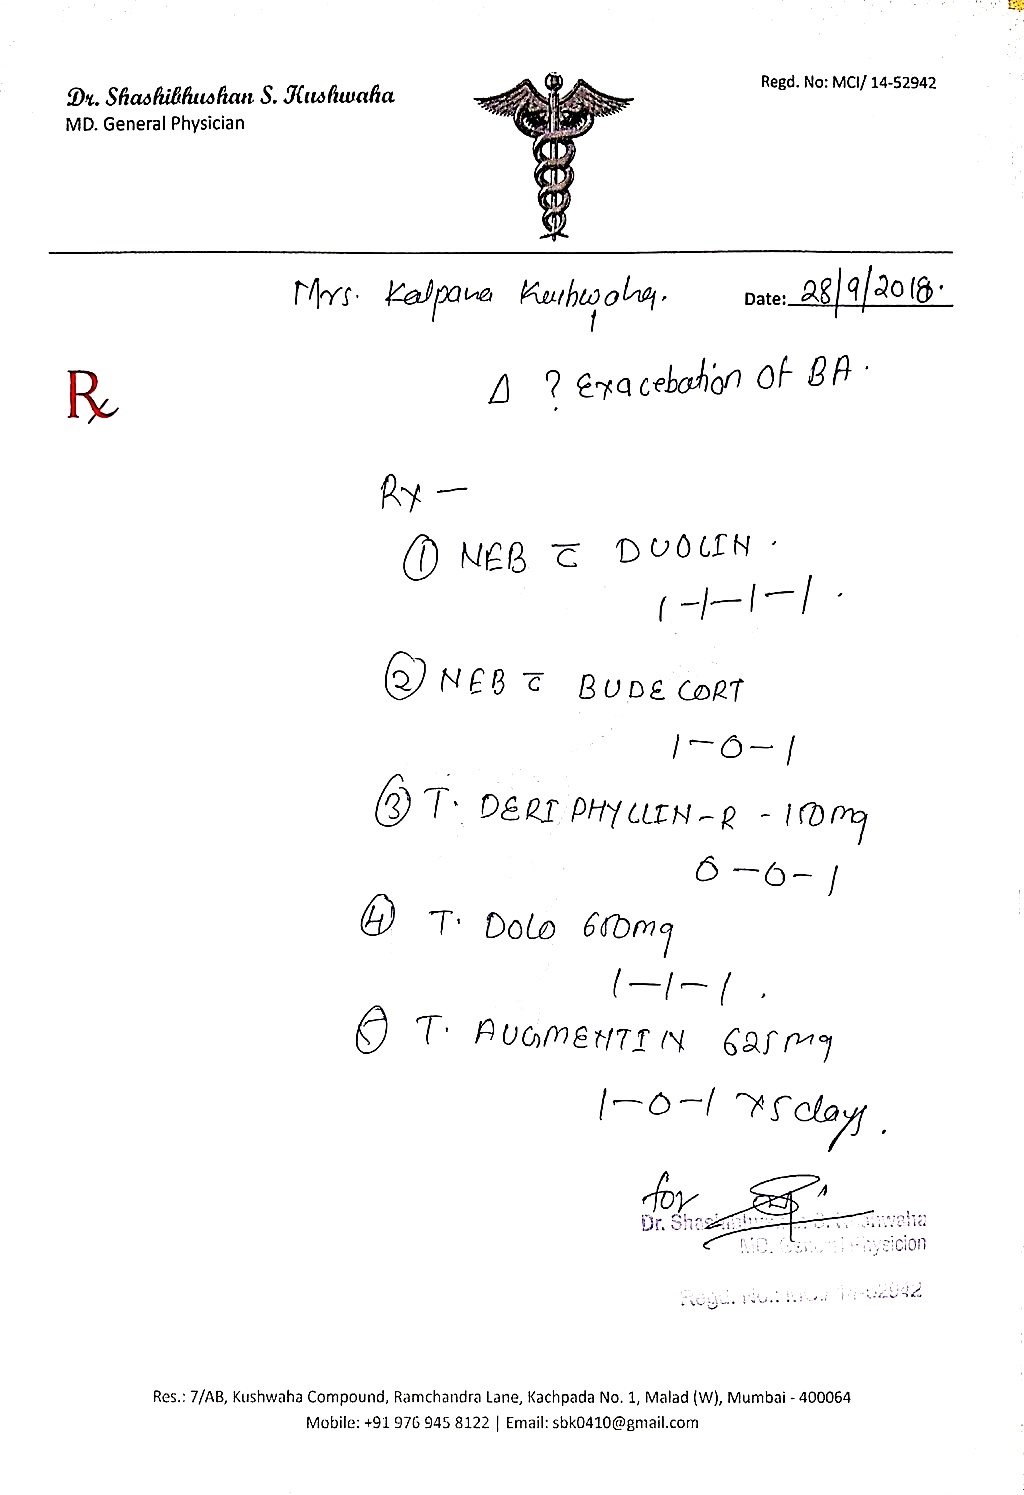 Dr. Shashibhushan S. Kushwaha
MD. General Physician
Regd. No: MCI/ 14-52942
Mrs. Kalpana Kushwaha.
Date: 28/9/2018.
Rx
Δ ? Exacebation of BA.
Rx —
① NEB c̄ DUOLIN.
1-1-1-1.
② NEB c̄ BUDECORT
1-0-1
③ T. DERIPHYLLIN-R - 150mg
0-0-1
④ T. DOLO 650mg
1-1-1.
⑤ T. AUGMENTIN 625mg
1-0-1 x 5 days.
for
Dr. Shashibhushan S. Kushwaha
MD. General Physicion
Regd. No.: MCI/ 14-52942
Res.: 7/AB, Kushwaha Compound, Ramchandra Lane, Kachpada No. 1, Malad (W), Mumbai - 400064
Mobile: +91 976 945 8122 | Email: sbk0410@gmail.com